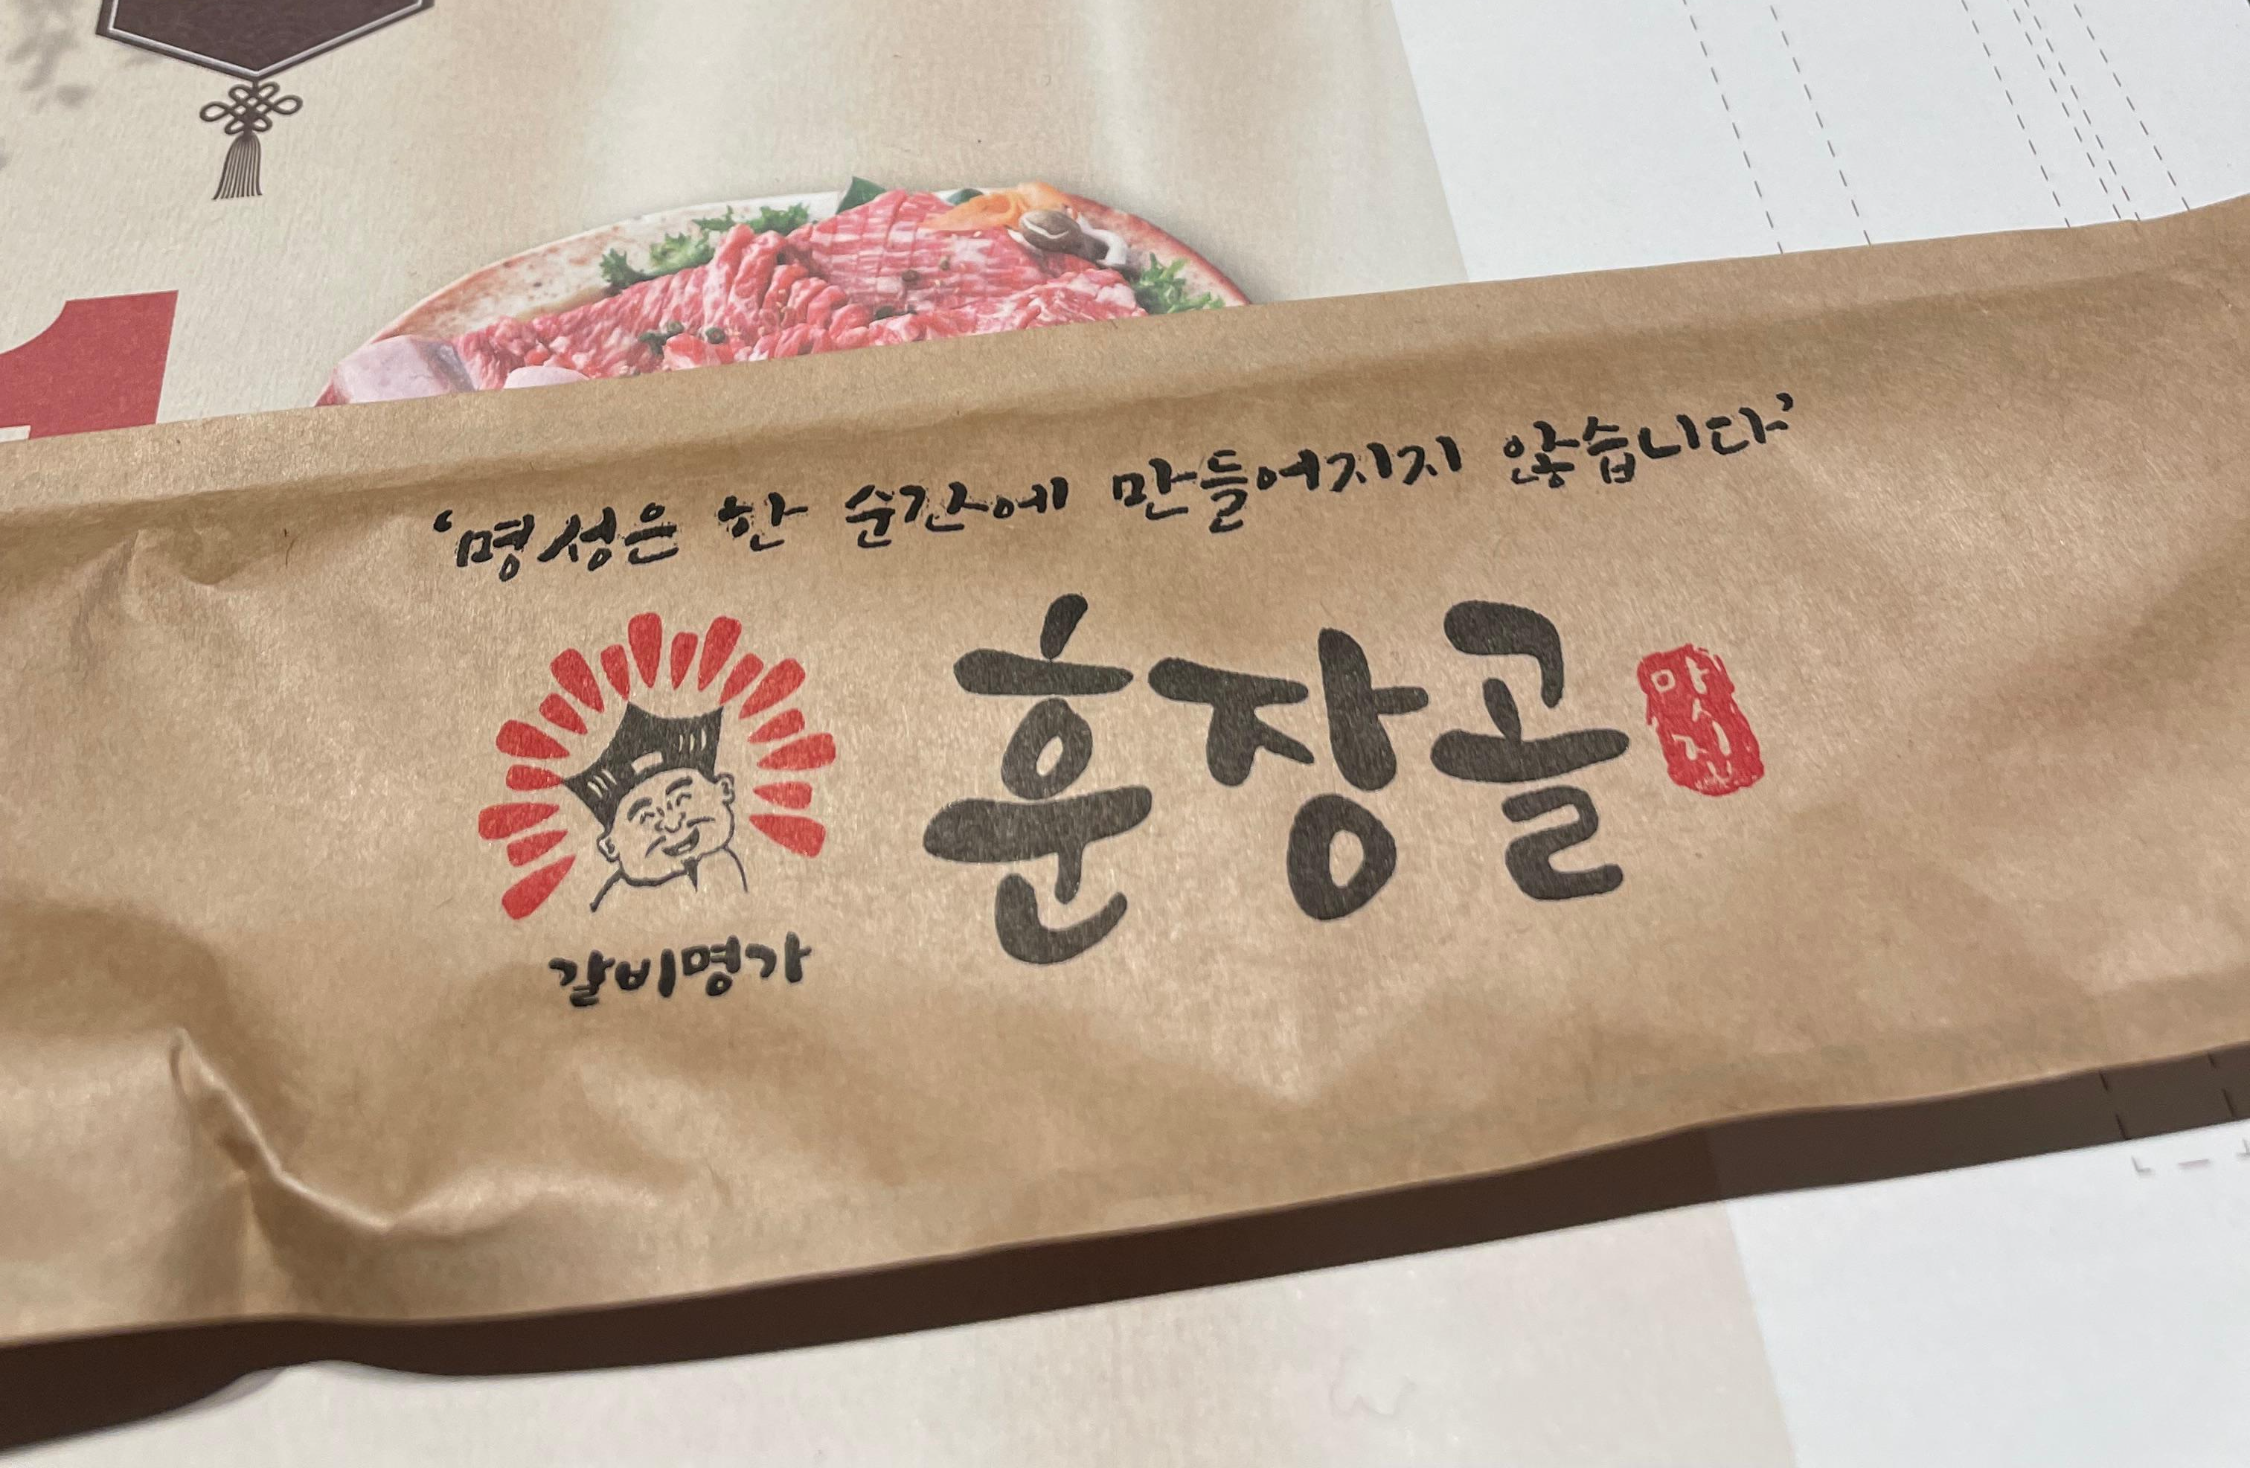 1
'명성은 한 순간에 만들어지지 않습니다'
훈장골
마시진
갈비명가